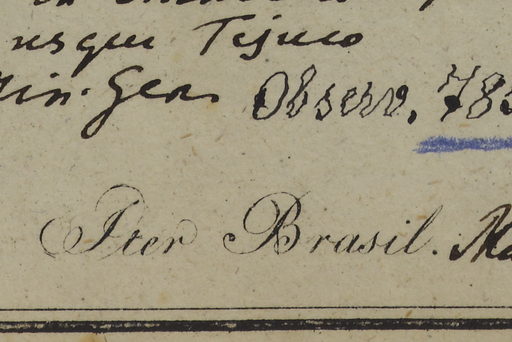 usque Tejuco
Min. Ger. Observ. 785
Iter Brasil. Ma